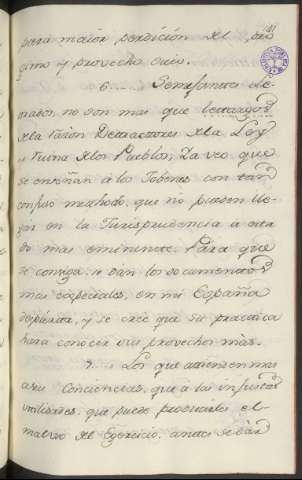 para maior perdición del
gimo y provecho suio.
6. — Semejantes Le-
trados, no son mas que
de la razon Detractores de la Ley
y Ruina de los Pueblos; Ya veo que
se enseñan à los Jobenes con tan
confuso methodo, que no pueden lle-
gar en la Jurisprudencia à esta-
do mas eminente. Para que
se consiga, si dàn los documentos
mas especiales, en mi España
despierta, y se cree que su practica
hara conocer sus provechos màs.
7. — Los que atienden mas
a sus Conciencias, que à las injustas
utilidades, que puede producirles el
mal uso del Egercicio, antes de dàr